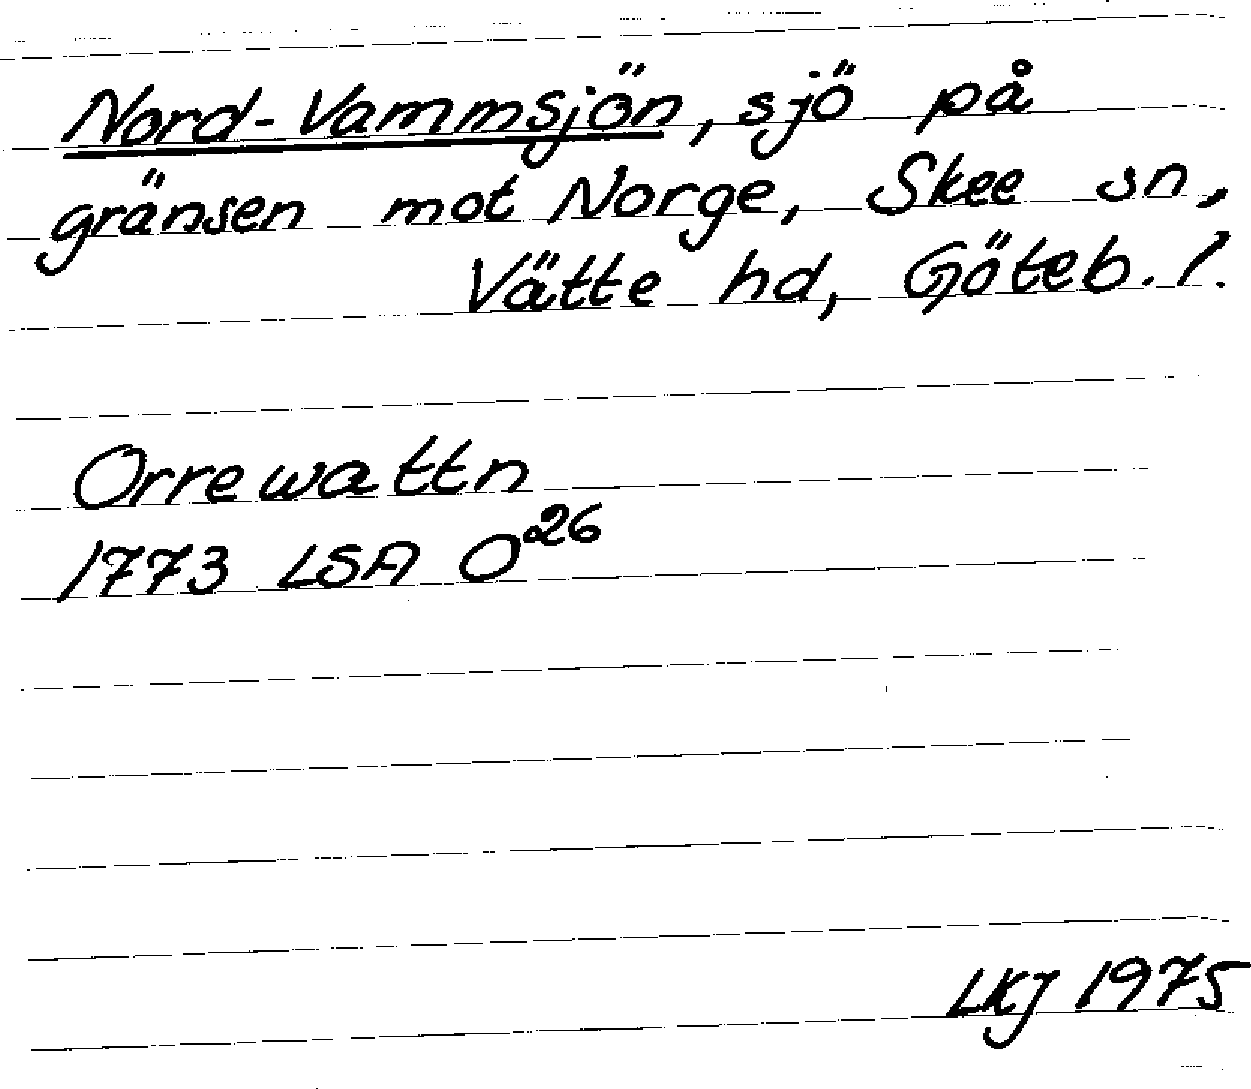 Nord-Vammsjön, sjö på
gränsen mot Norge, Skee sn,
Vätte hd, Göteb. l.
Orrewattn
1773 LSA O26
LKJ 1975